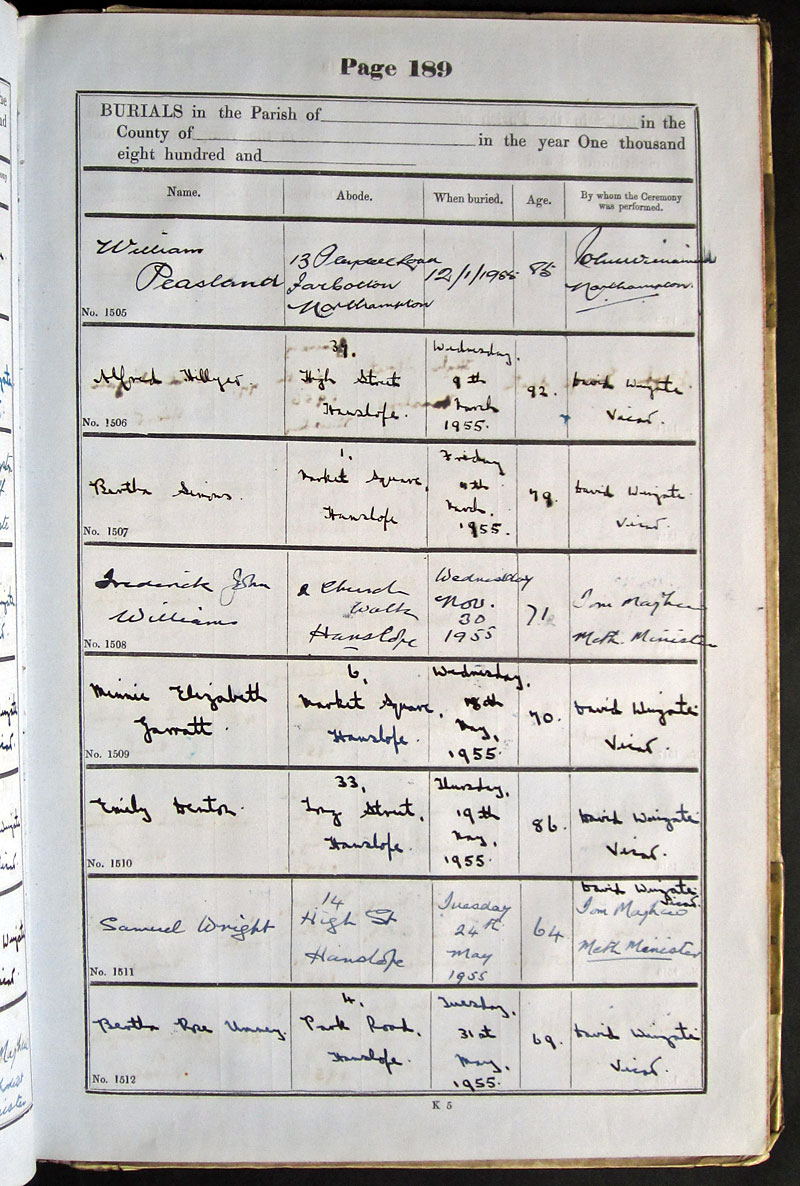 Page 189
BURIALS in the Parish of in the
County of in the year One thousand
eight hundred and
Name. Abode. When buried. Age. By whom the Ceremony was performed.
William
Peasland
13
Far Cotton
Northampton
12/1/1955
85
Northampton.
No. 1505
Alfred Hillyer.
39.
High Street
Hanslope.
Wednesday,
9th
March
1955.
92.
David Wingate
Vicar.
No. 1506
Bertha Simons.
1,
Market Square,
Hanslope
Friday
March,
1955.
79.
David Wingate
Vicar.
No. 1507
Frederick John
Williams
2 Church
Walk
Hanslope
Wednesday
Nov.
30
1955
71
Tom
Meth. Minister
No. 1508
Minnie Elizabeth
Garratt.
6,
Market Square,
Hanslope.
Wednesday,
18th
May,
1955.
70.
David Wingate
Vicar.
No. 1509
Emily Denton.
33,
Long Street,
Hanslope.
Thursday,
19th
May,
1955.
86.
David Wingate
Vicar.
No. 1510
Samuel Wright
14
High St
Hanslope
Tuesday
24th
May
1955
64
David Wingate
Vicar.
Tom
Meth Minister
No. 1511
Bertha Rose
4,
Park Road,
Hanslope.
Tuesday,
31st
May,
1955.
69.
David Wingate
Vicar.
No. 1512
K 5